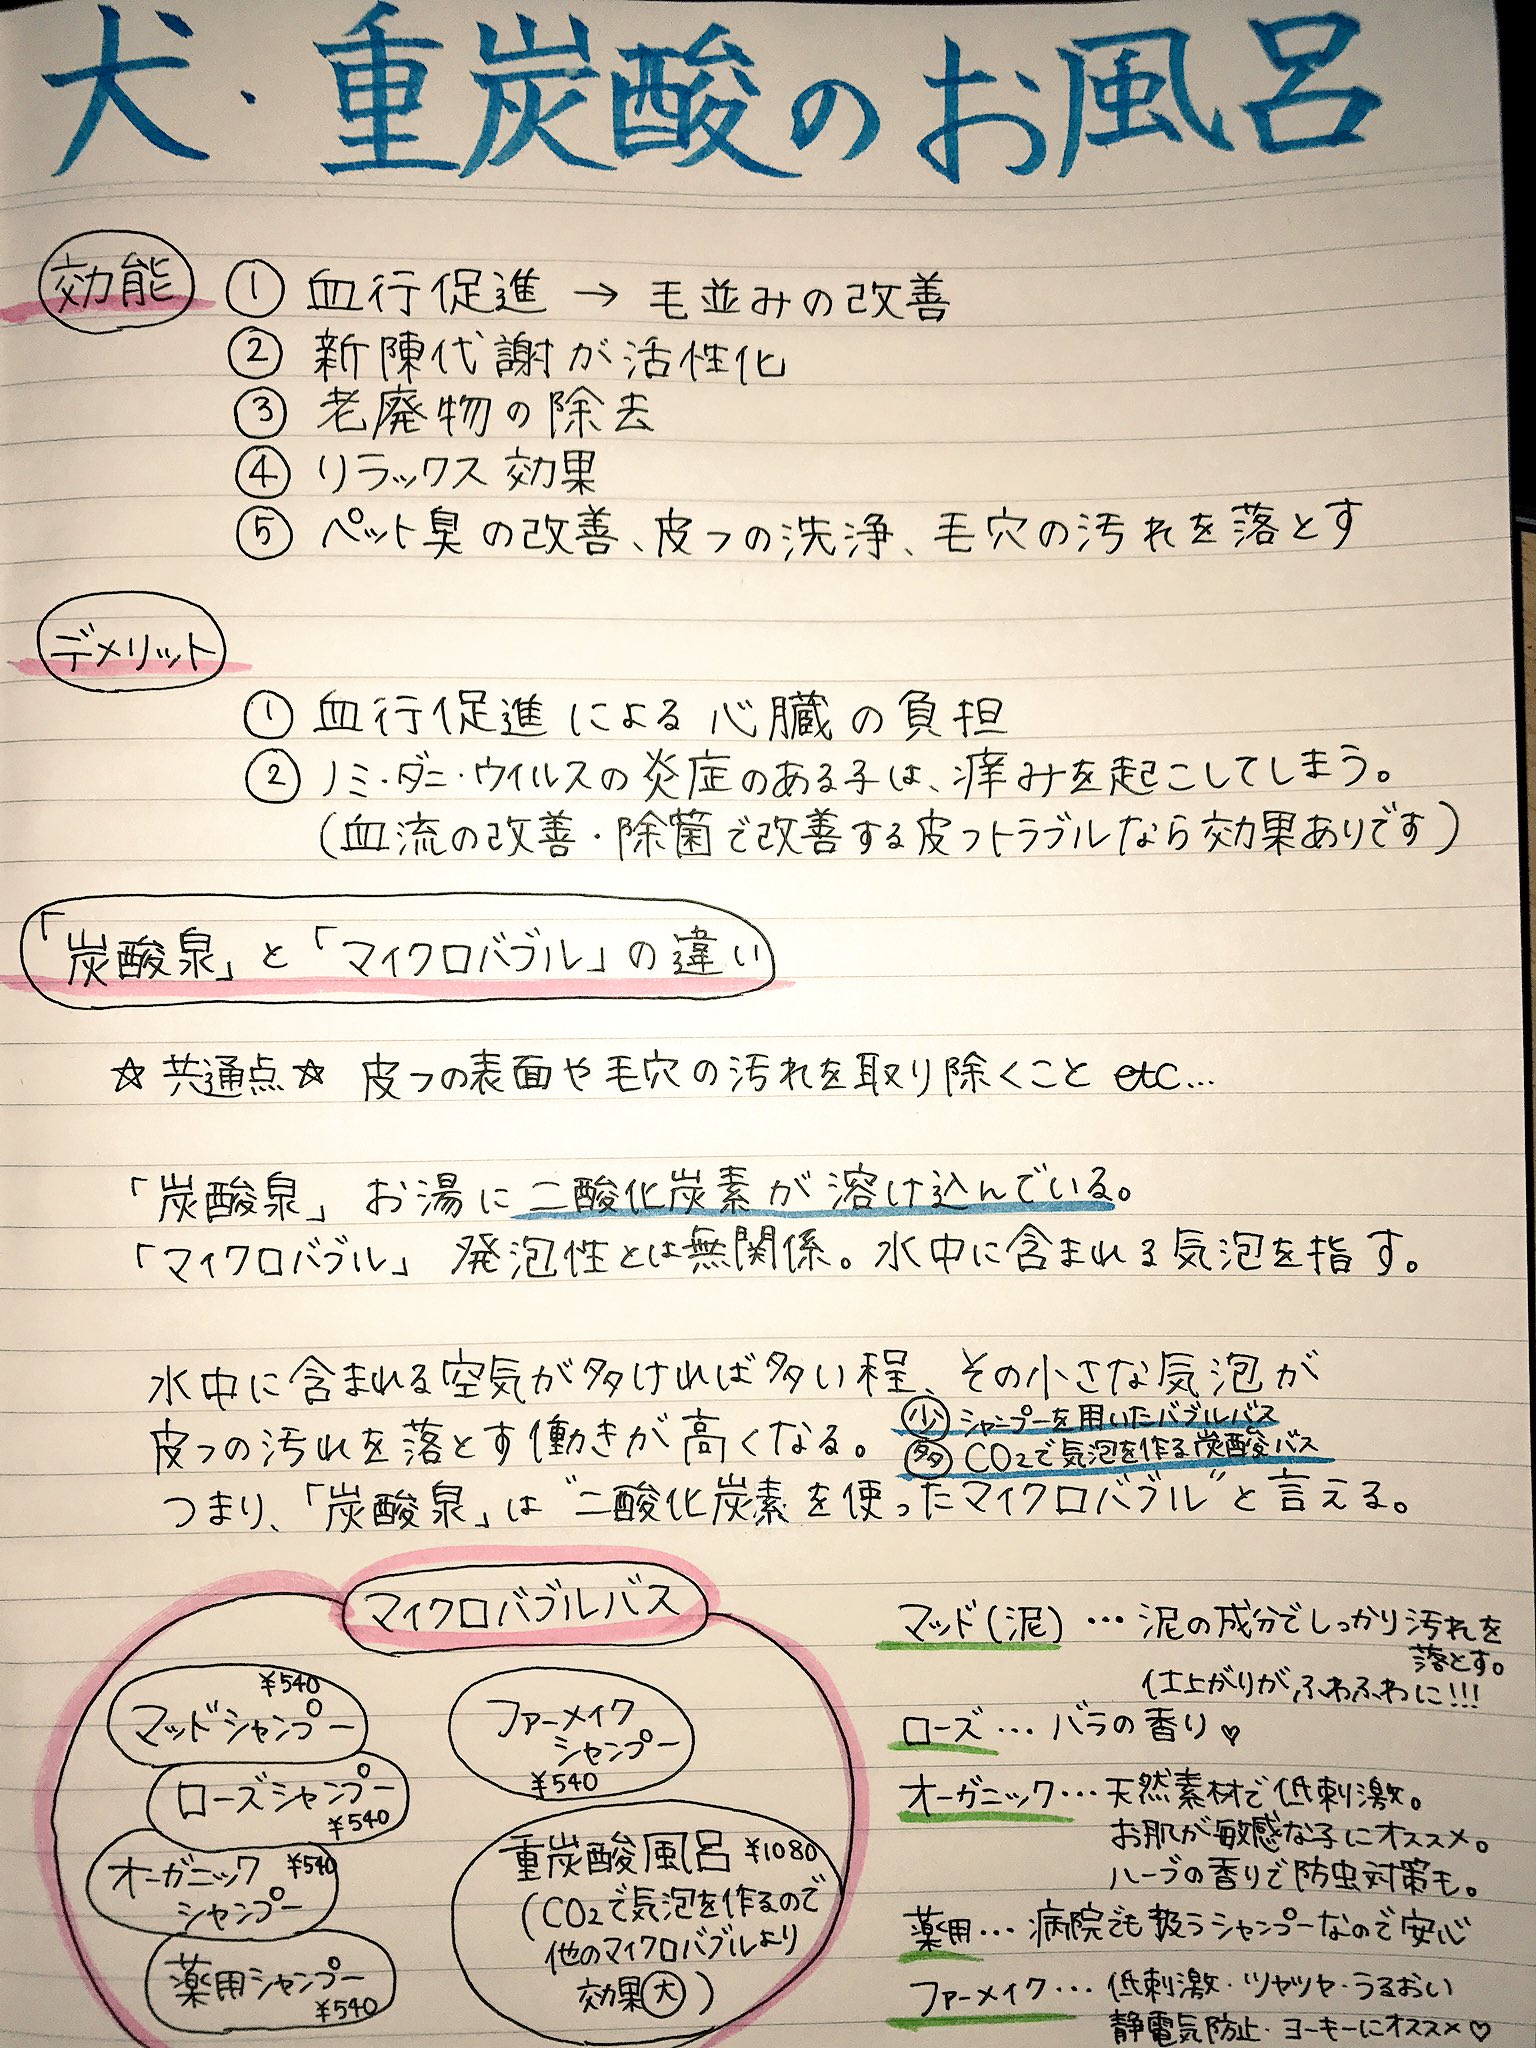 犬・重炭酸のお風呂
効能 ① 血行促進 → 毛並みの改善
② 新陳代謝が活性化
③ 老廃物の除去
④ リラックス効果
⑤ ペット臭の改善、皮フの洗浄、毛穴の汚れを落とす
デメリット
① 血行促進による心臓の負担
② ノミ・ダニ・ウイルスの炎症のある子は、痒みを起こしてしまう。
(血流の改善・除菌で改善する皮フトラブルなら効果ありです)
「炭酸泉」と「マイクロバブル」の違い
☆共通点☆ 皮フの表面や毛穴の汚れを取り除くこと etc...
「炭酸泉」 お湯に二酸化炭素が溶け込んでいる。
「マイクロバブル」 発泡性とは無関係。水中に含まれる気泡を指す。
水中に含まれる空気が多ければ多い程、その小さな気泡が
皮フの汚れを落とす働きが高くなる。
少 シャンプーを用いたバブルバス
多 CO₂で気泡を作る炭酸バス
つまり、「炭酸泉」は"二酸化炭素を使ったマイクロバブル"と言える。
マイクロバブルバス
¥540
マッドシャンプー
ローズシャンプー
¥540
オーガニック ¥540
シャンプー
薬用シャンプー
¥540
ファーメイク
シャンプー
¥540
重炭酸風呂 ¥1080
(CO₂で気泡を作るので
他のマイクロバブルより
効果大)
マッド(泥) … 泥の成分でしっかり汚れを
落とす。
仕上がりがふわふわに!!!
ローズ … バラの香り♡
オーガニック … 天然素材で低刺激。
お肌が敏感な子にオススメ。
ハーブの香りで防虫対策も。
薬用 … 病院でも扱うシャンプーなので安心
ファーメイク … 低刺激・ツヤツヤ・うるおい
静電気防止・ヨーキーにオススメ♡